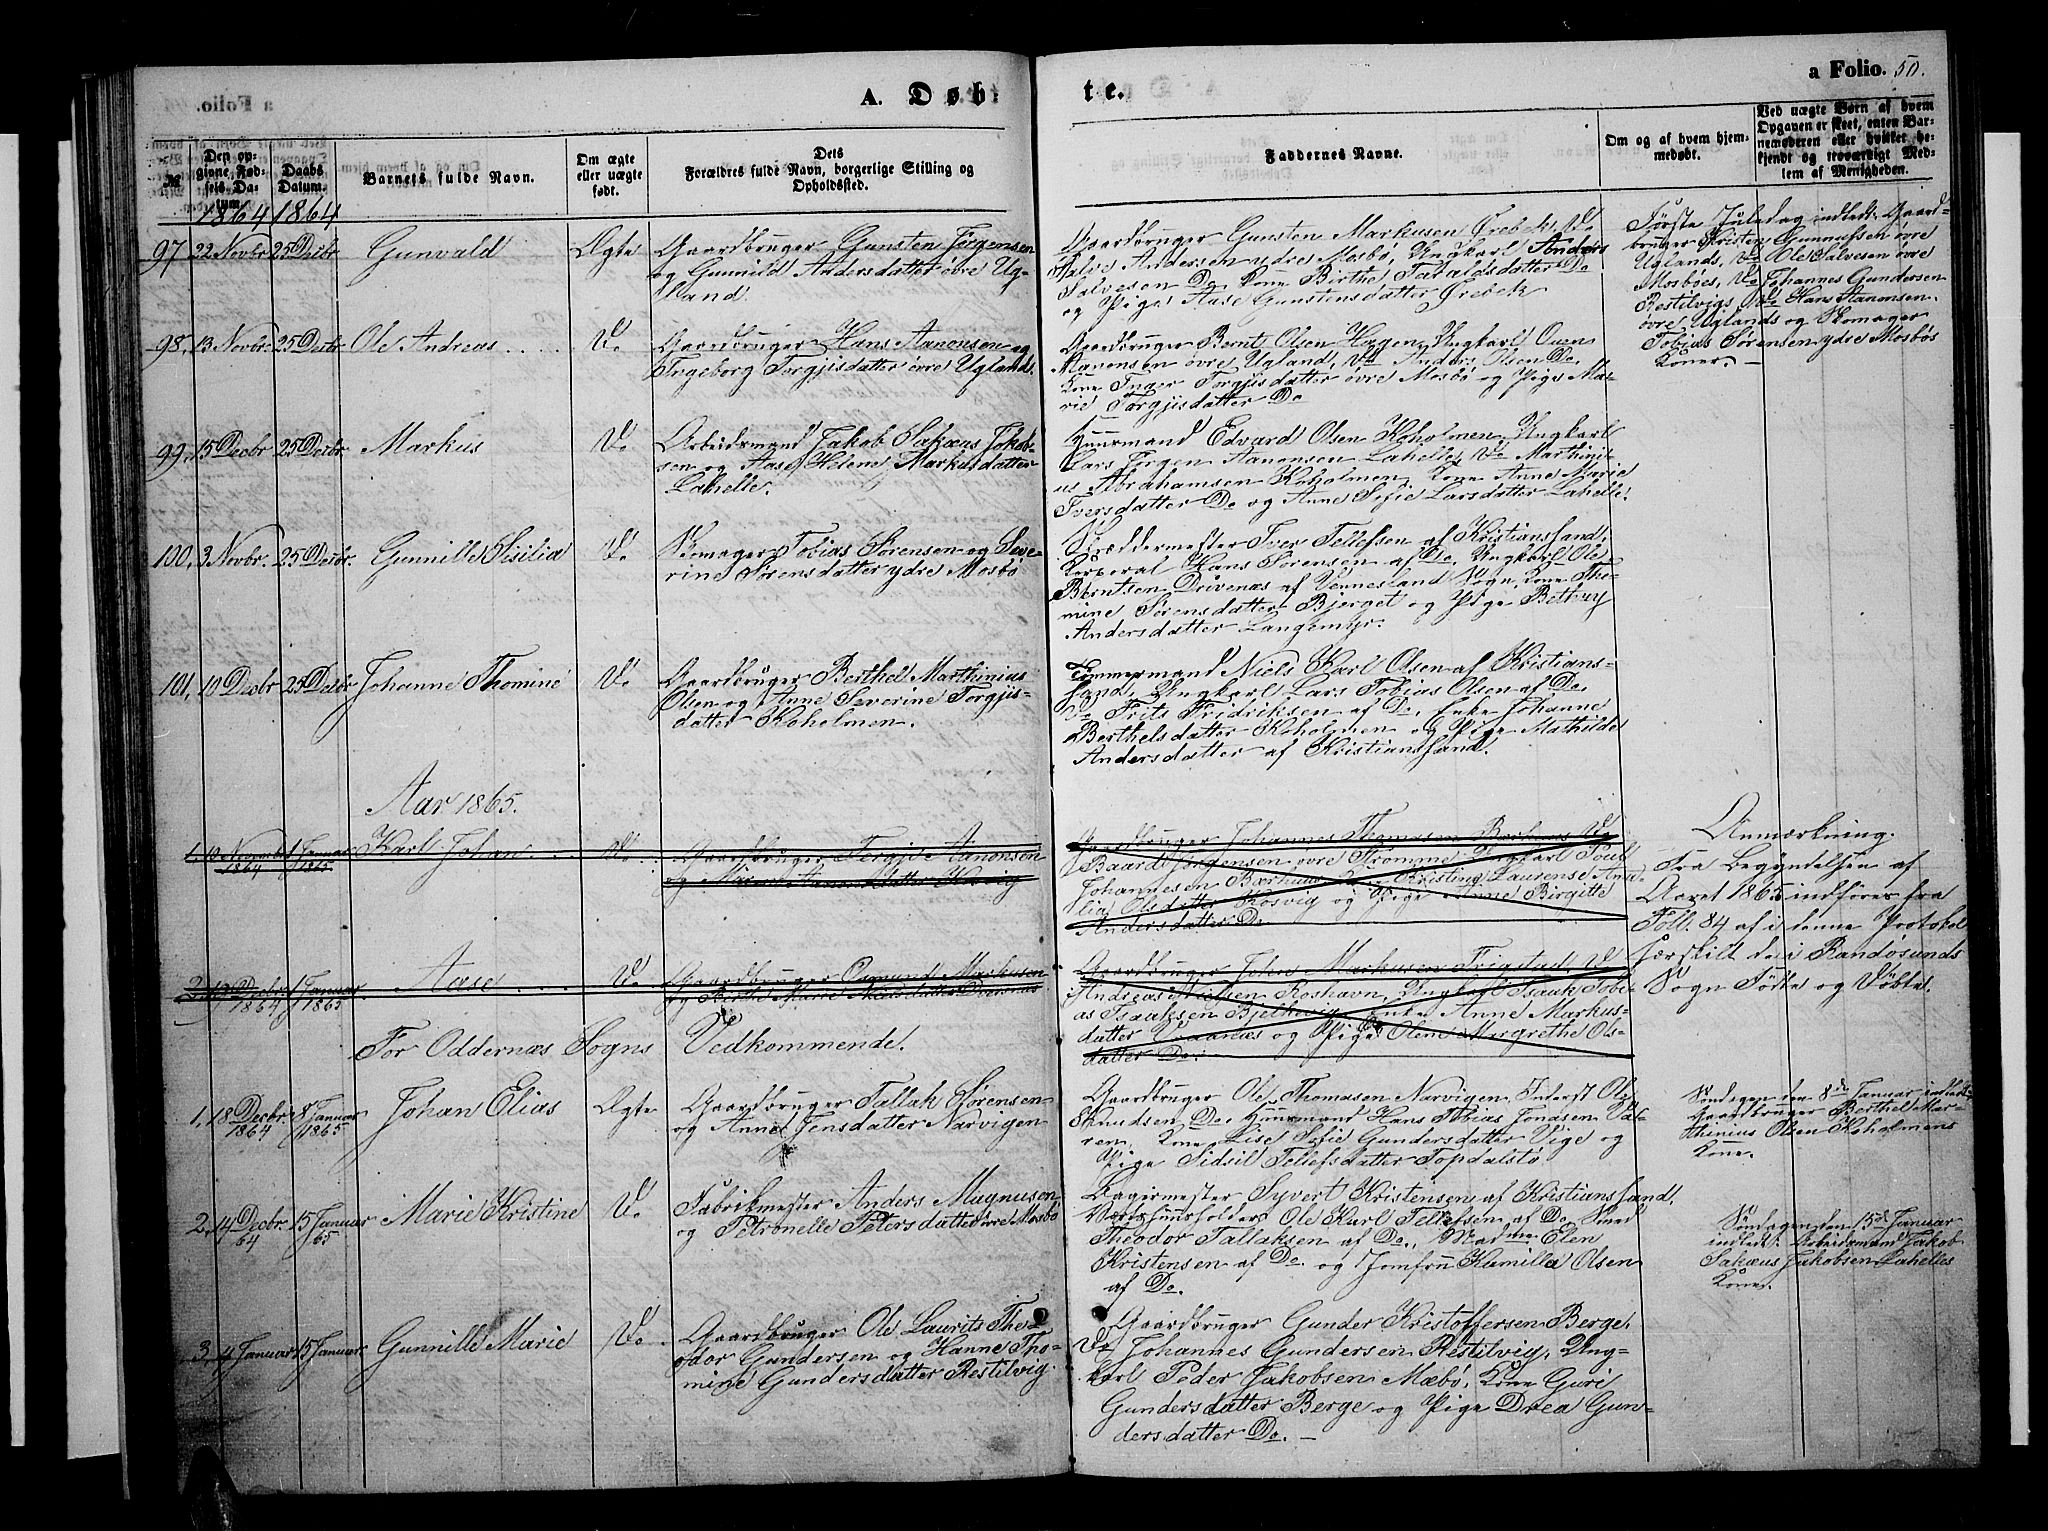 A. Døbte.
a Folio. 50.
№
Den opgivne Fødsels Datum.
Daabs Datum.
Barnets fulde Navn.
Om ægte eller uægte født.
Dets Forældres fulde Navn, borgerlige Stilling og Opholdssted.
Faddernes Navne.
Om og af hvem hjemmedøbt.
Ved uægte Børn af hvem Opgaven er skeet, enten Barnemoderen eller hvilket bekjendt og troværdigt Medlem af Menigheden.
1864 1864
97 22 Novbr 25 Decbr Gunvald Ægte
Gaardbruger Gunsten Jørgensen
og Gunnild Andersdatter øvre Ug-
land.
Gaardbruger Gunsten Markusen Ørebek, Do
Salve Andersen ydre Mosbö, Ungkarl Anders
Salvesen Do Kone Birthe Taraldsdatter Do
og Pige Aase Gunstensdatter Örebek
Første Juledag indledt: Gaard-
bruger Kristen Gunnufsen øvre
Uglands, Do Ole Salvesen øvre
Mosbøes, Do Johannes Gundersen
Restilvigs, Do Hans Aanonsen
øvre Uglands og Skomager
Tobias Sørensen ydre Mosbös
Koner. —
98. 13 Novbr. 25 Decbr. Ole Andreas Do
Gaardbruger Hans Aanonsen og
Ingeborg Torgjisdatter øvre Ugland.
Gaardbruger Bernt Olsen Hagen, Ungkarl Ouen
Aanonsen øvre Ugland, Do Anders Olsen Do
Kone Inger Torgjisdatter øvre Mosbø og Pige Ma-
rie Torgjisdatter Do
99. 15 Decbr 25 Decbr. Markus Do
Arbeidsmand Jakob Sakæus Jakob-
sen og Aase Helene Markusdatter
Lahelle.
Huusmand Edvard Olsen Koholmen, Ungkarl
Lars Jørgen Aanonsen Lahelle, Do Marthini-
us Abrahamsen Koholmen, Kone Anne Marie
Iversdatter Do og Anne Sofie Larsdatter Lahelle.
100. 3 Novbr. 25 Decbr. Gunnille Sisilia Do
Skomager Tobias Sørensen og Seve-
rine Sørensdatter ydre Mosbö
Skræddermester Iver Tellefsen af Kristianssand,
Korporal Hans Sørensen af Do, Ungkarl Ole
Berntsen Drivenæs af Vennesland Sogn, Kone Tho-
mine Sørensdatter Bjerget og Pige Bethzy
Andersdatter Langemyr.
101, 10 Decbr 25 Decbr Johanne Thomine Do
Gaardbruger Berthel Marthinius
Olsen og Anne Severine Torgjis-
datter Koholmen.
Tømmermand Niels Karl Olsen af Kristians-
sand, Ungkarl Lars Tobias Olsen af Do.
Do Frits Fridriksen af Do, Enke Johanne
Berthelsdatter Koholmen og Pige Mathilde
Andersdatter af Kristianssand.
Aar 1865.
1, 10 Novembr 1864 1 Januar 1865 Karl Johan Do
Gaardbruger Tergje Aanonsen
og Maren Aanonsdatter Kosvig
Gaardbruger Johannes Thomasen Bærhuus, Do
Baard Jørgensen øvre Stromme, Ungkarl
Johannesen Bærhuus, Kone Kristine Laurense Ama-
lia Olsdatter Kosvig og Pige Anne Birgitte
Andersdatter Do
Anmærkning.
Fra Begyndelsen af
Aaret 1865 indføres fra
Foll. 84 af i denne Protokol
særskilt de i Randøsunds
Sogn Fødte og Døbte.
2, 19 Decbr 1864 1 Januar 1865. Aase Do
Gaardbruger Osmund Markusen
og Birthe Marie Nielsdatter
Gaardbruger John Markusen Frigstad, Do
Andreas Nielsen Roshavn, Ungkarl Isaak Tobi-
as Isaksen Bjelkevig, Enke Anne Markus-
datter og Pige Olene Margrethe Ols-
datter Do.
For Oddernæs Sogns Vedkommende.
1, 18 Decbr 1864 8 Januar 1865 Johan Elias Ægte
Gaardbruger Tallak Sørensen
og Anne Jensdatter Narvigen
Gaardbruger Ole Thomasen Narvigen, Inderst Ole
Knudsen Do, Huusmand Hans Tobias Jonasen Va-
ren, Kone Lise Sofie Gundersdatter Vige og
Pige Sidsil Tellefsdatter Topdalstö
Søndagen den 8de Januar indledt
Gaardbruger Berthel Mar-
thinius Olsen Koholmens
Kone.
2, 14 Decbr 64 15 Januar 65 Marie Kristine Do
Fabrikmester Anders Magnusen
og Petronelle Petersdatter øvre Mosbö
Bagermester Syvert Kristensen af Kristianssand,
Værtshuusholder Ole Karl Tellefsen af Do, Smed
Theodor Tallaksen af Do, Madme Elen
Kristensen af Do og Jomfru Kamilla Olsen
af Do.
Søndagen den 15de Januar
indledt: Arbeidsmand Jakob
Sakæus Jakobsen Lahelles
Kone.
3, 4 Januar 15 Januar. Gunnille Marie Do
Gaardbruger Ole Laurits The-
odor Gundersen og Hanne Tho-
mine Gundersdatter Restilvig.
Gaardbruger Gunder Kristoffersen Berge,
Do Johannes Gundersen Restilvig, Ung-
karl Peder Jakobsen Mæbø, Kone Guri
Gundersdatter Berge og Pige Drea Gun-
dersdatter Do. —